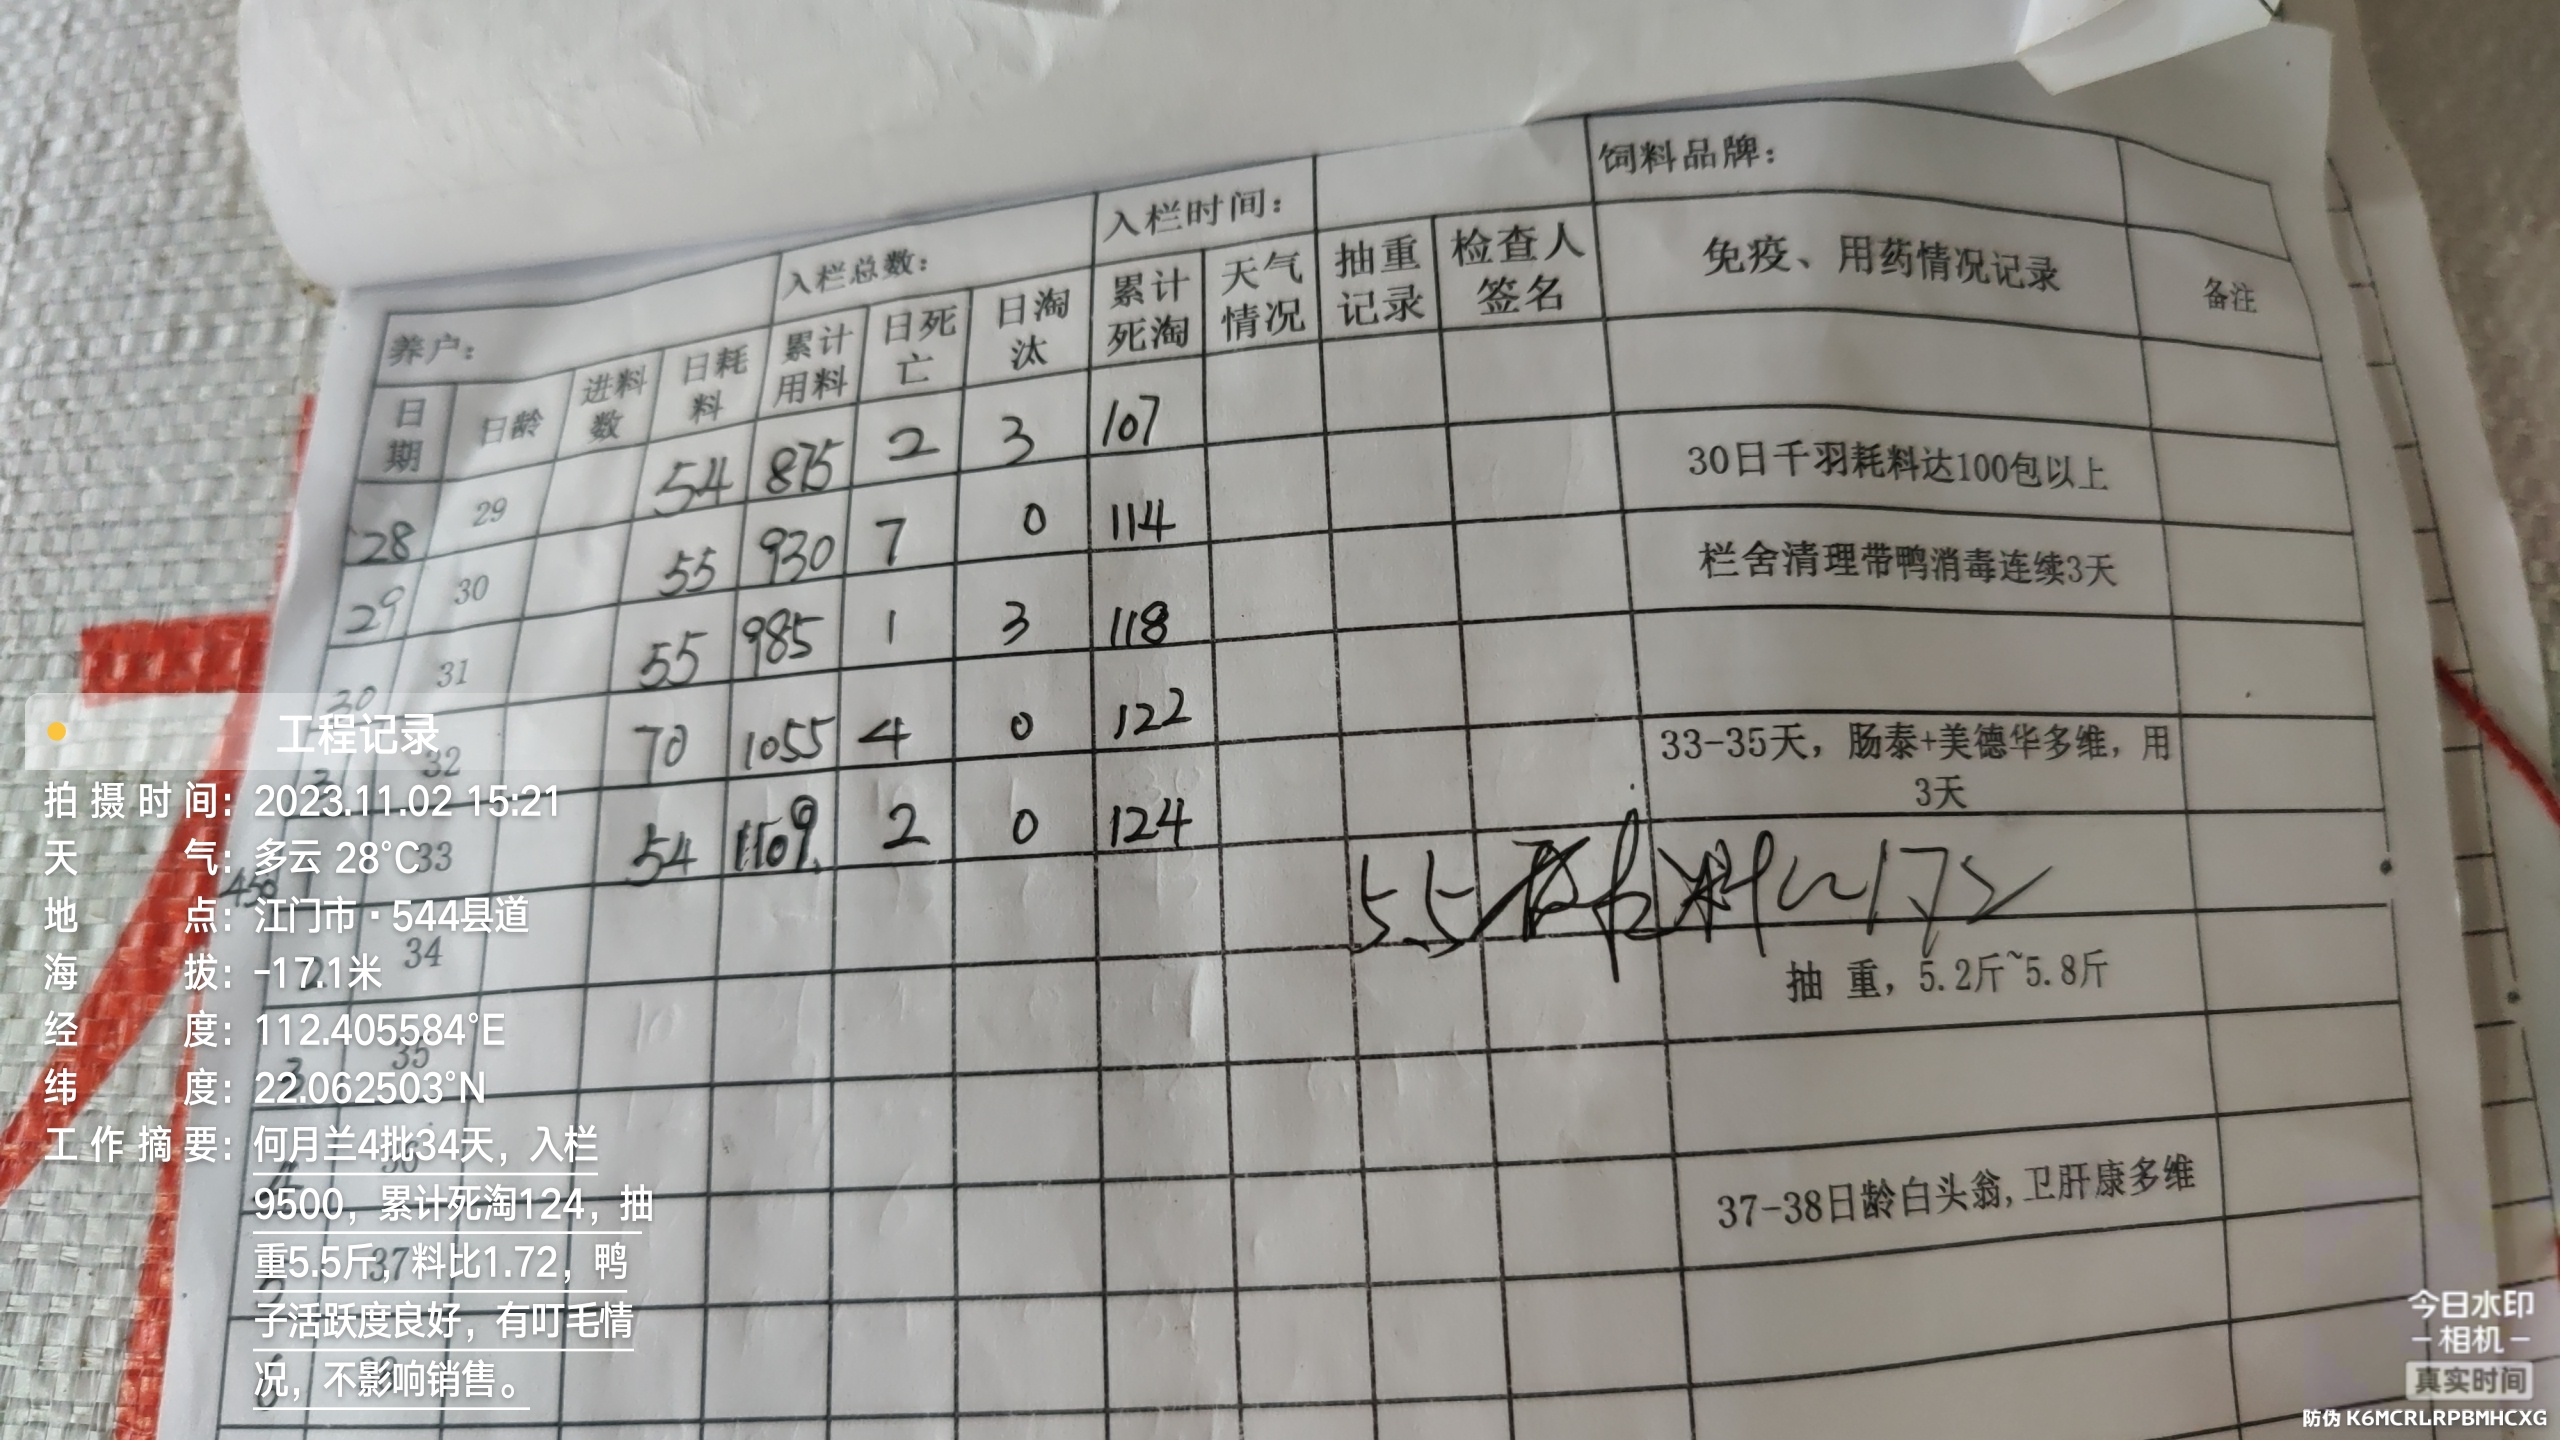 饲料品牌：
养户： 入栏总数： 入栏时间：
日期 日龄 进料数 日耗料 累计用料 日死亡 日淘汰 累计死淘 天气情况 抽重记录 检查人签名 免疫、用药情况记录 备注
28 29 54 875 2 3 107
29 30 55 930 7 0 114 30日千羽耗料达100包以上
30 31 55 985 1 3 118 栏舍清理带鸭消毒连续3天
32 70 1055 4 0 122
33 54 1109 2 0 124 33-35天，肠泰+美德华多维，用
3天
5.5 料比1.72
2 34 抽 重，5.2斤~5.8斤
3 35
4 36
37 37-38日龄白头翁,卫肝康多维
6
工程记录
拍摄时间：2023.11.02 15:21
天气：多云 28°C
地点：江门市·544县道
海拔：-17.1米
经度：112.405584°E
纬度：22.062503°N
工作摘要：何月兰4批34天，入栏
9500，累计死淘124，抽
重5.5斤，料比1.72，鸭
子活跃度良好，有叮毛情
况，不影响销售。
今日水印
相机
真实时间
防伪 K6MCRLRPBMHCXG